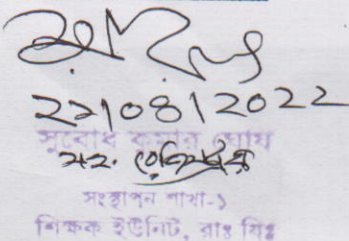 ২২/০৪/2022
সুবোধ কুমার ঘোষ
সহ. রেজিস্ট্রার
সংস্থাপন শাখা-১
শিক্ষক ইউনিট, রাঃ বিঃ